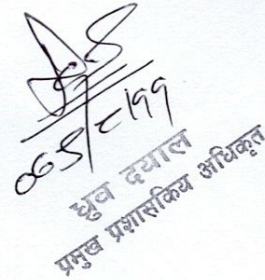 ०६५/८/११
ध्रुव दयाल
प्रमुख प्रशासकिय अधिकृत